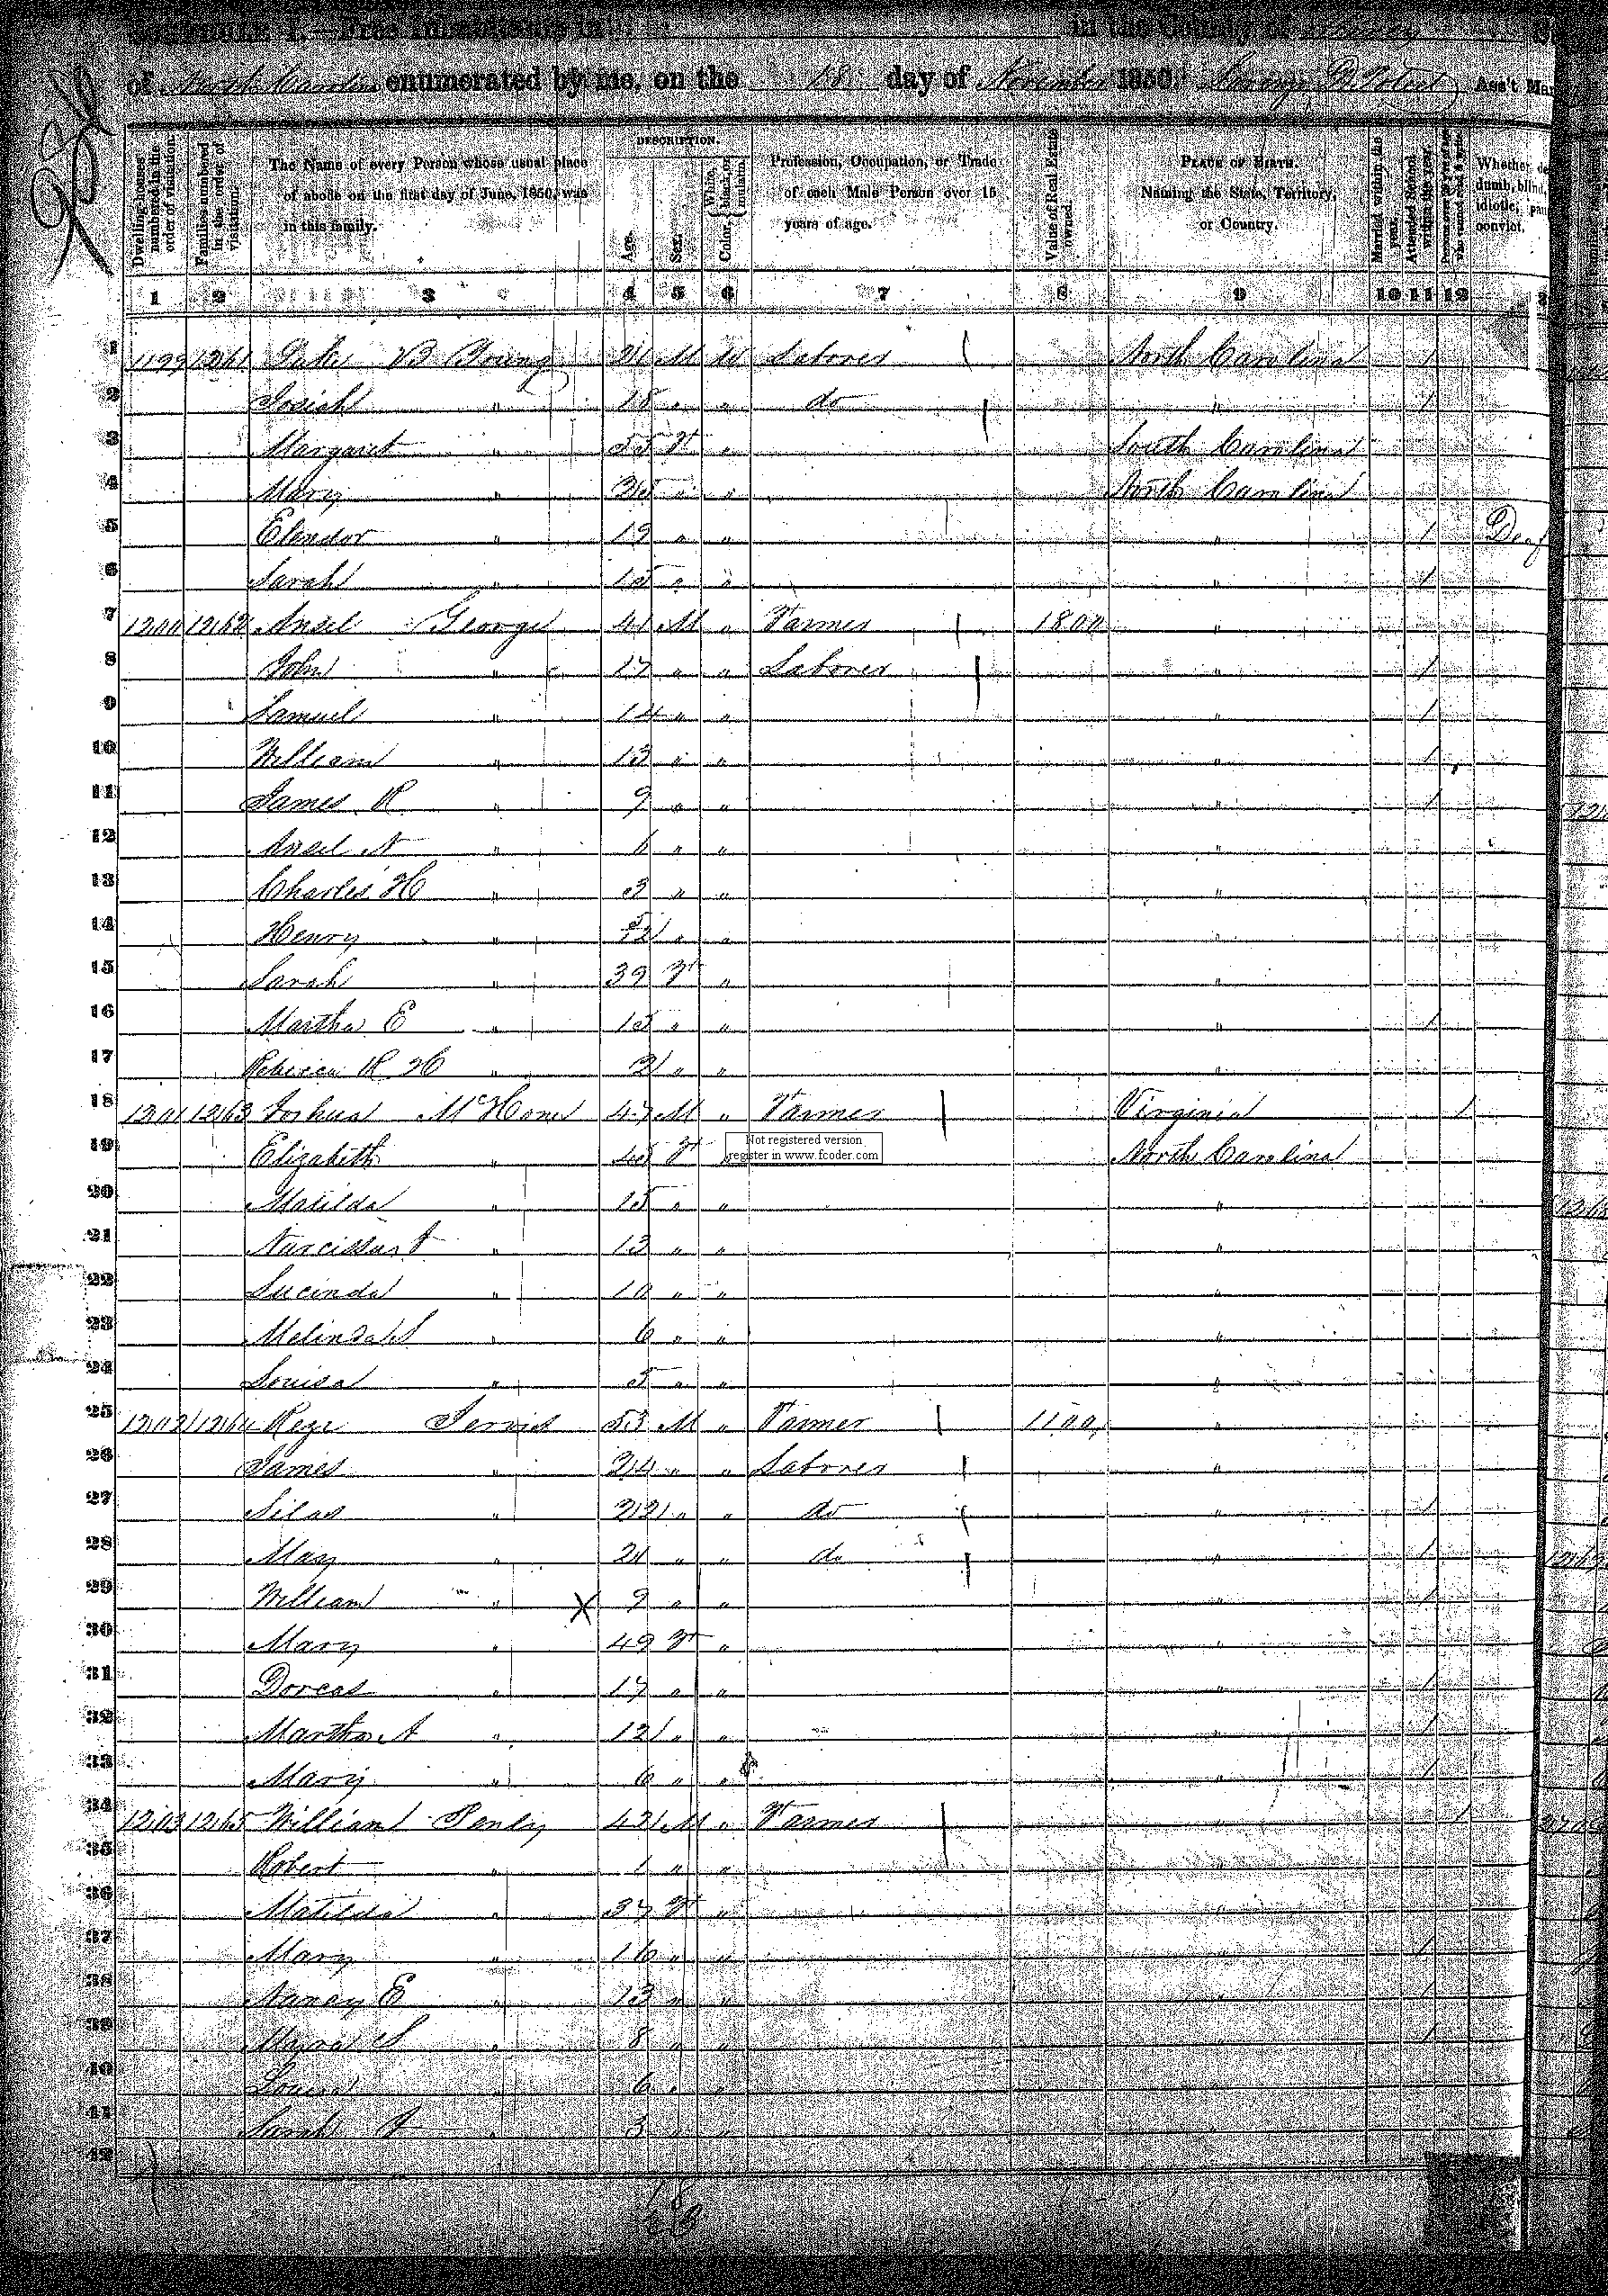 SCHEDULE I.—Free Inhabitants in in the County of
of North Carolina enumerated by me, on the 18 day of November 1850. Ass't Mar
DESCRIPTION.
Dwelling-houses numbered in the order of visitation.
Families numbered in the order of visitation.
The Name of every Person whose usual place of abode on the first day of June, 1850, was in this family.
Age.
Sex.
Color, White, black, or mulatto.
Profession, Occupation, or Trade of each Male Person over 15 years of age.
Value of Real Estate owned.
PLACE OF BIRTH. Naming the State, Territory, or Country.
Married within the year.
Attended School within the year.
Persons over 20 y'rs of age who cannot read & write.
Whether dumb, blind, idiotic, convict.
1 2 3 4 5 6 7 8 9 10 11 12
1 1199 1261 B Young 21 M W Laborer North Carolina 1
2 Josiah " 18 " " do " 1
3 Margaret " 55 F " South Carolina
4 Mary " 25 " " North Carolina
5 Elendor " 19 " " " 1 Deaf
6 Sarah " 15 " " " 1
7 1200 1262 Ansel George 41 M " Farmer 1800 "
8 John " 17 " " Laborer " 1
9 Samuel " 14 " " " 1
10 William " 13 " " " 1
11 James R " 9 " " " 1
12 Ansel N " 6 " " "
13 Charles H " 3 " " "
14 Henry " 5/12 " " "
15 Sarah " 39 F " "
16 Martha E " 15 " " " 1
17 Rebecca R H " 2 " " "
18 1201 1263 Joshua McHone 47 M " Farmer Virginia 1
19 Elizabeth " 45 F North Carolina
Not registered version
register in www.fcoder.com
20 Matilda " 15 " " "
21 Narcissa " 13 " " "
22 Lucinda " 10 " "
23 Melinda S " 6 " " "
24 Louisa " 5 " " "
25 1202 1264 Reze Jervis 53 M " Farmer 1100 "
26 James " 24 " " Laborer "
27 Silas " 22 " " do " 1
28 May " 21 " " do " 1
29 William " X 9 " " " 1
30 Mary " 49 F " "
31 Dorcas " 17 " " " 1
32 Martha A " 12 " " " 1
33 Mary " 6 " " " 1
34 1203 1265 William Penly 42 M " Farmer " 1
35 Robert " 1 " " "
36 Matilda " 37 F " "
37 Mary " 16 " " " 1
38 Nancy E " 13 " " " 1
39 S " 8 " " " 1
40 Louisa " 6 " "
41 Sarah " 3 " " "
42